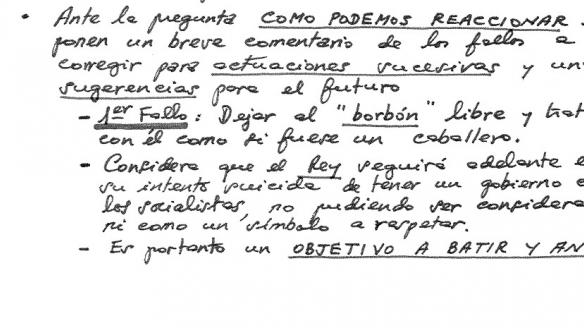 • Ante la pregunta COMO PODEMOS REACCIONAR
ponen un breve comentario de los fallos a
corregir para actuaciones sucesivas y un
sugerencias para el futuro
- 1er Fallo: Dejar al "borbón" libre y trat
con él como si fuese un caballero.
- Considera que el Rey seguirá adelante e
su intento suicida de tener un gobierno c
los socialistas, no pudiendo ser considera
ni como un símbolo a respetar.
- Es portanto un OBJETIVO A BATIR Y AN